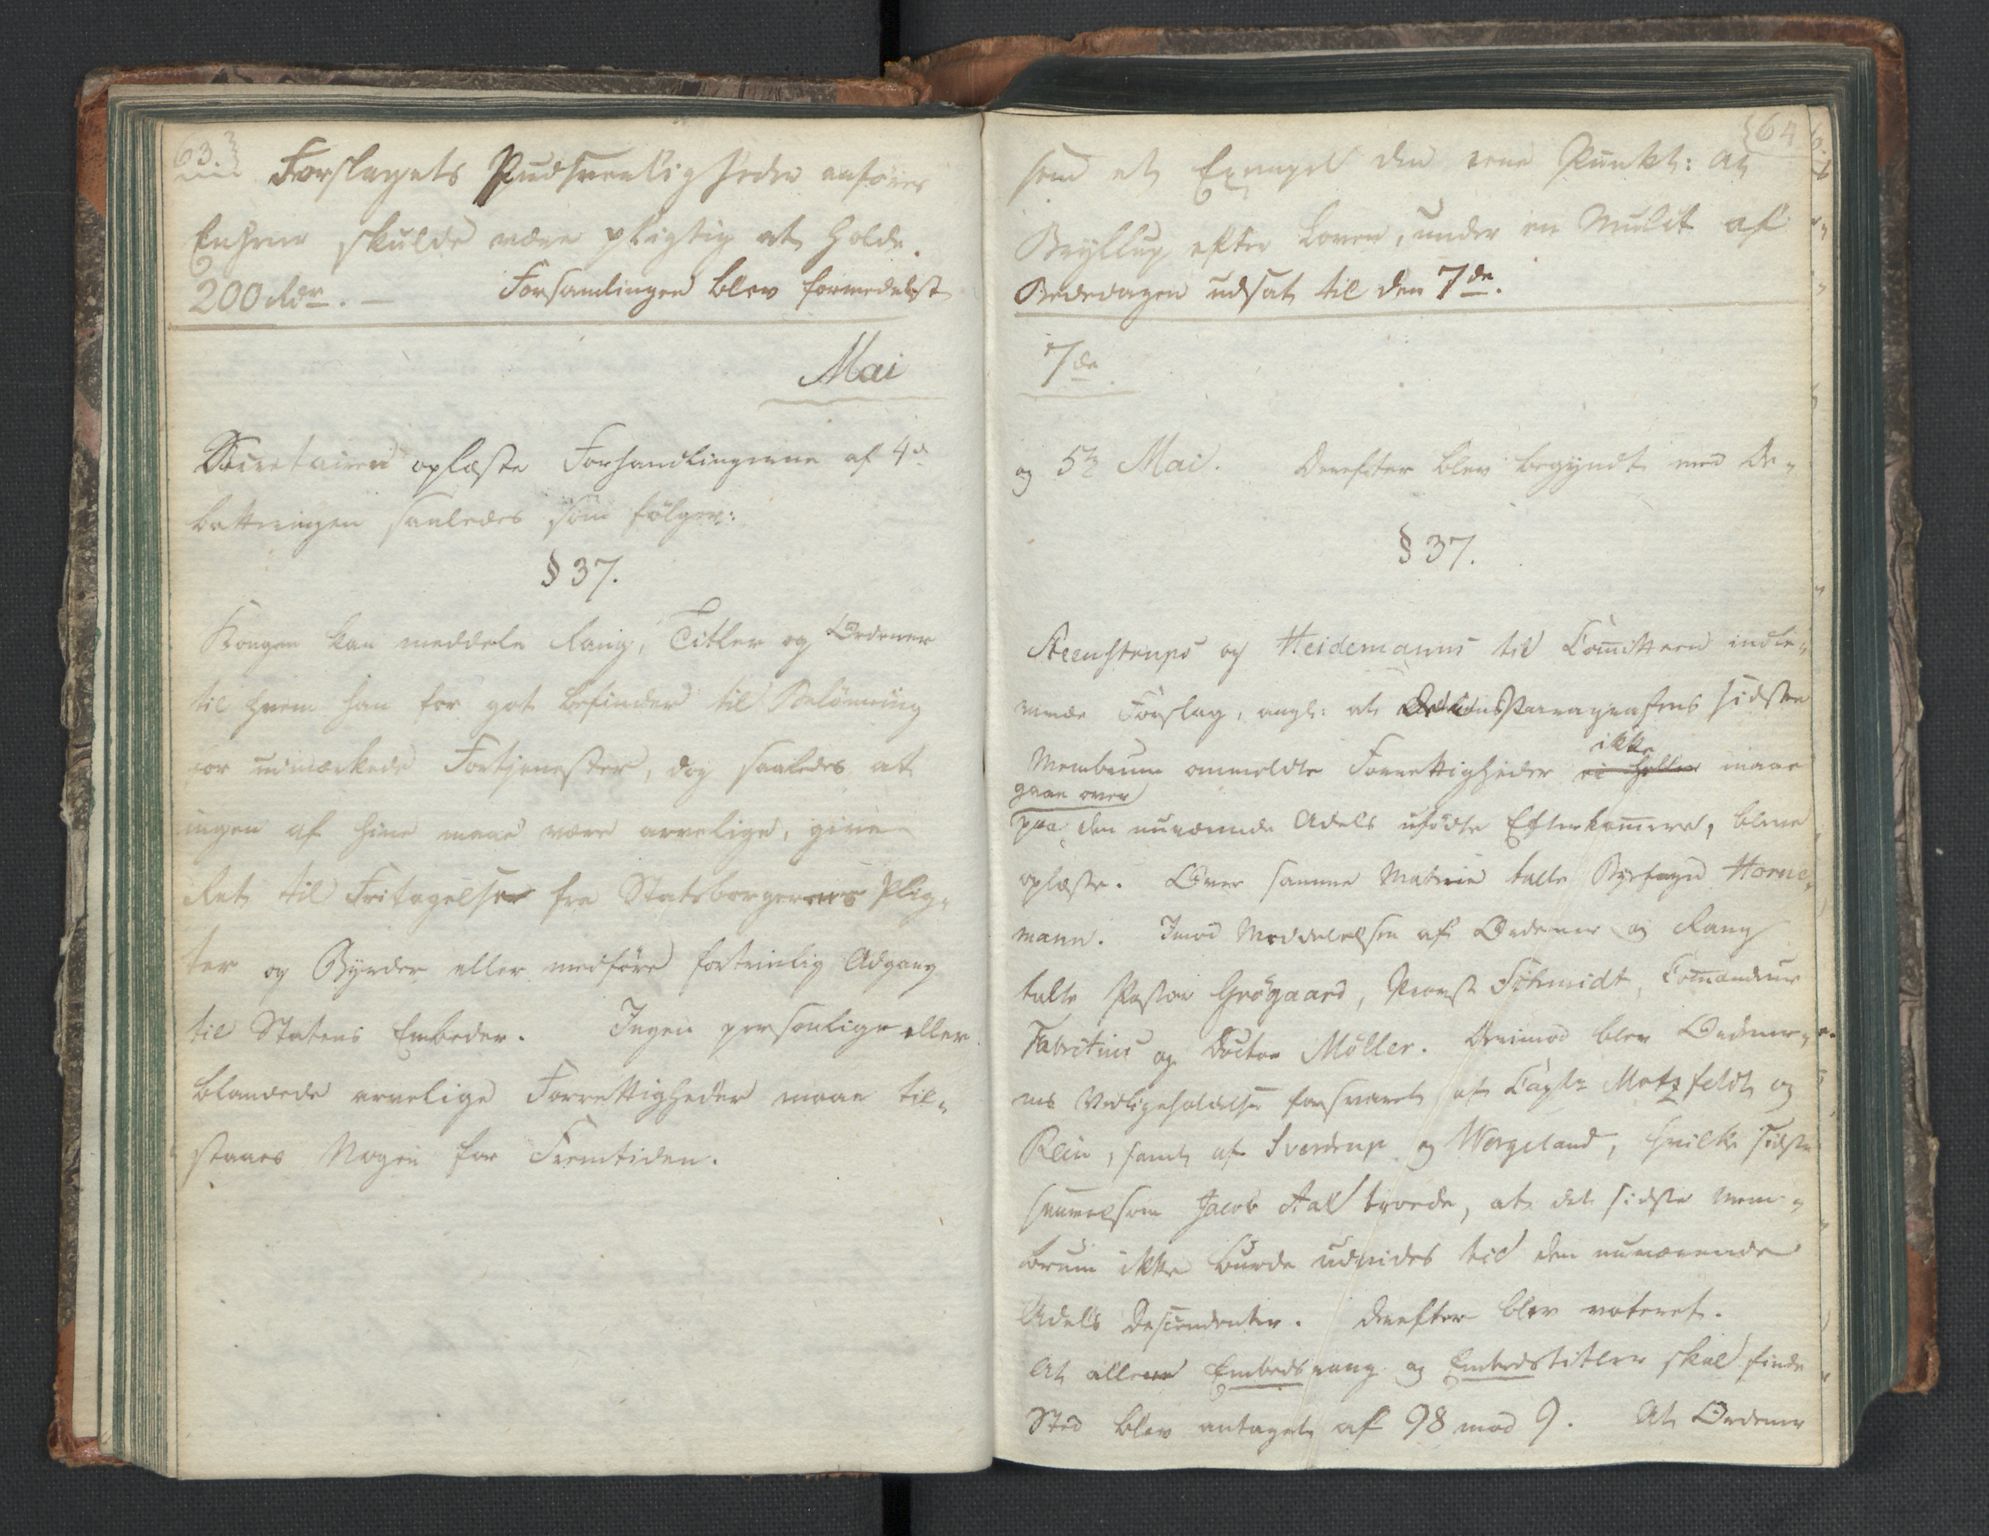 63.
Forslagets Pudseerligheder anføres
Enhver skulde være pligtig at holde
200 Rdr. — Forsamlingen blev formedelst
Mai
Secretairen oplæste Forhandlingerne af 4de
batteringen saaledes som følger:
§ 37.
Kongen kan meddele Rang, Titler og Ordener
til hvem han for got befinder til Belönning
for udmærkede Fortjenester, dog saaledes at
ingen af hine maae være arvelige, give
Ret til Fritagelser fra Statsborgerens Plig-
ter og Byrder eller medføre fortrinlig Adgang
til Statens Embeder. Ingen personlige eller
blandede arvelige Forrettigheder maae til-
staaes Nogen for Fremtiden.
64
som et Exempel den ene Punkt: At
Bryllup efter Loven, under en Mulct af
Bededagen udsat til den 7de.
7de
og 5te Mai. Derefter blev begyndt med De-
§ 37.
Steenstrups og Heidemanns til Comitteen indle-
verede Forslag, angl: at Paragrafens sidste
Membrum ommeldte Forrettigheder ei heller ikke maae
gaae over
paa den nuværende Adels ufødte Efterkommere, bleve
oplæste. Over samme Materie talte Byfogd Horne-
mann. Imod Meddelelsen af Ordener og Rang
talte Pastor Grøgaard, Provst Schmidt, Comandeur
Fabritius og Doctor Möller. Derimod blev Ordener-
nes Vedligeholdelse forsvaret af Captn Motzfeldt og
Rein, samt af Sverdrup og Wergeland, hvilke sidste
saavelsom Jacob Aal troede, at det sidste Mem-
brum ikke burde udvides til den nuværende
Adels Descendenter. Derefter blev voteret.
At allene Embedsrang og Embedstitler skal finde
Sted blev antaget af 98 mod 9. At Ordener